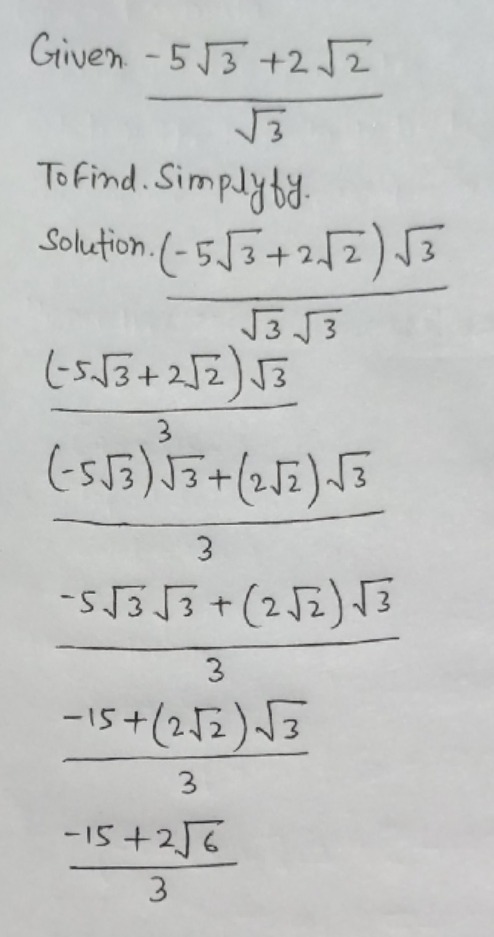 Given. -5√3 +2√2
√3
To find. Simplyfy.
Solution. (-5√3+2√2)√3
√3 √3
(-5√3+2√2)√3
3
(-5√3)√3+(2√2)√3
3
-5√3√3 + (2√2)√3
3
-15+(2√2)√3
3
-15+2√6
3